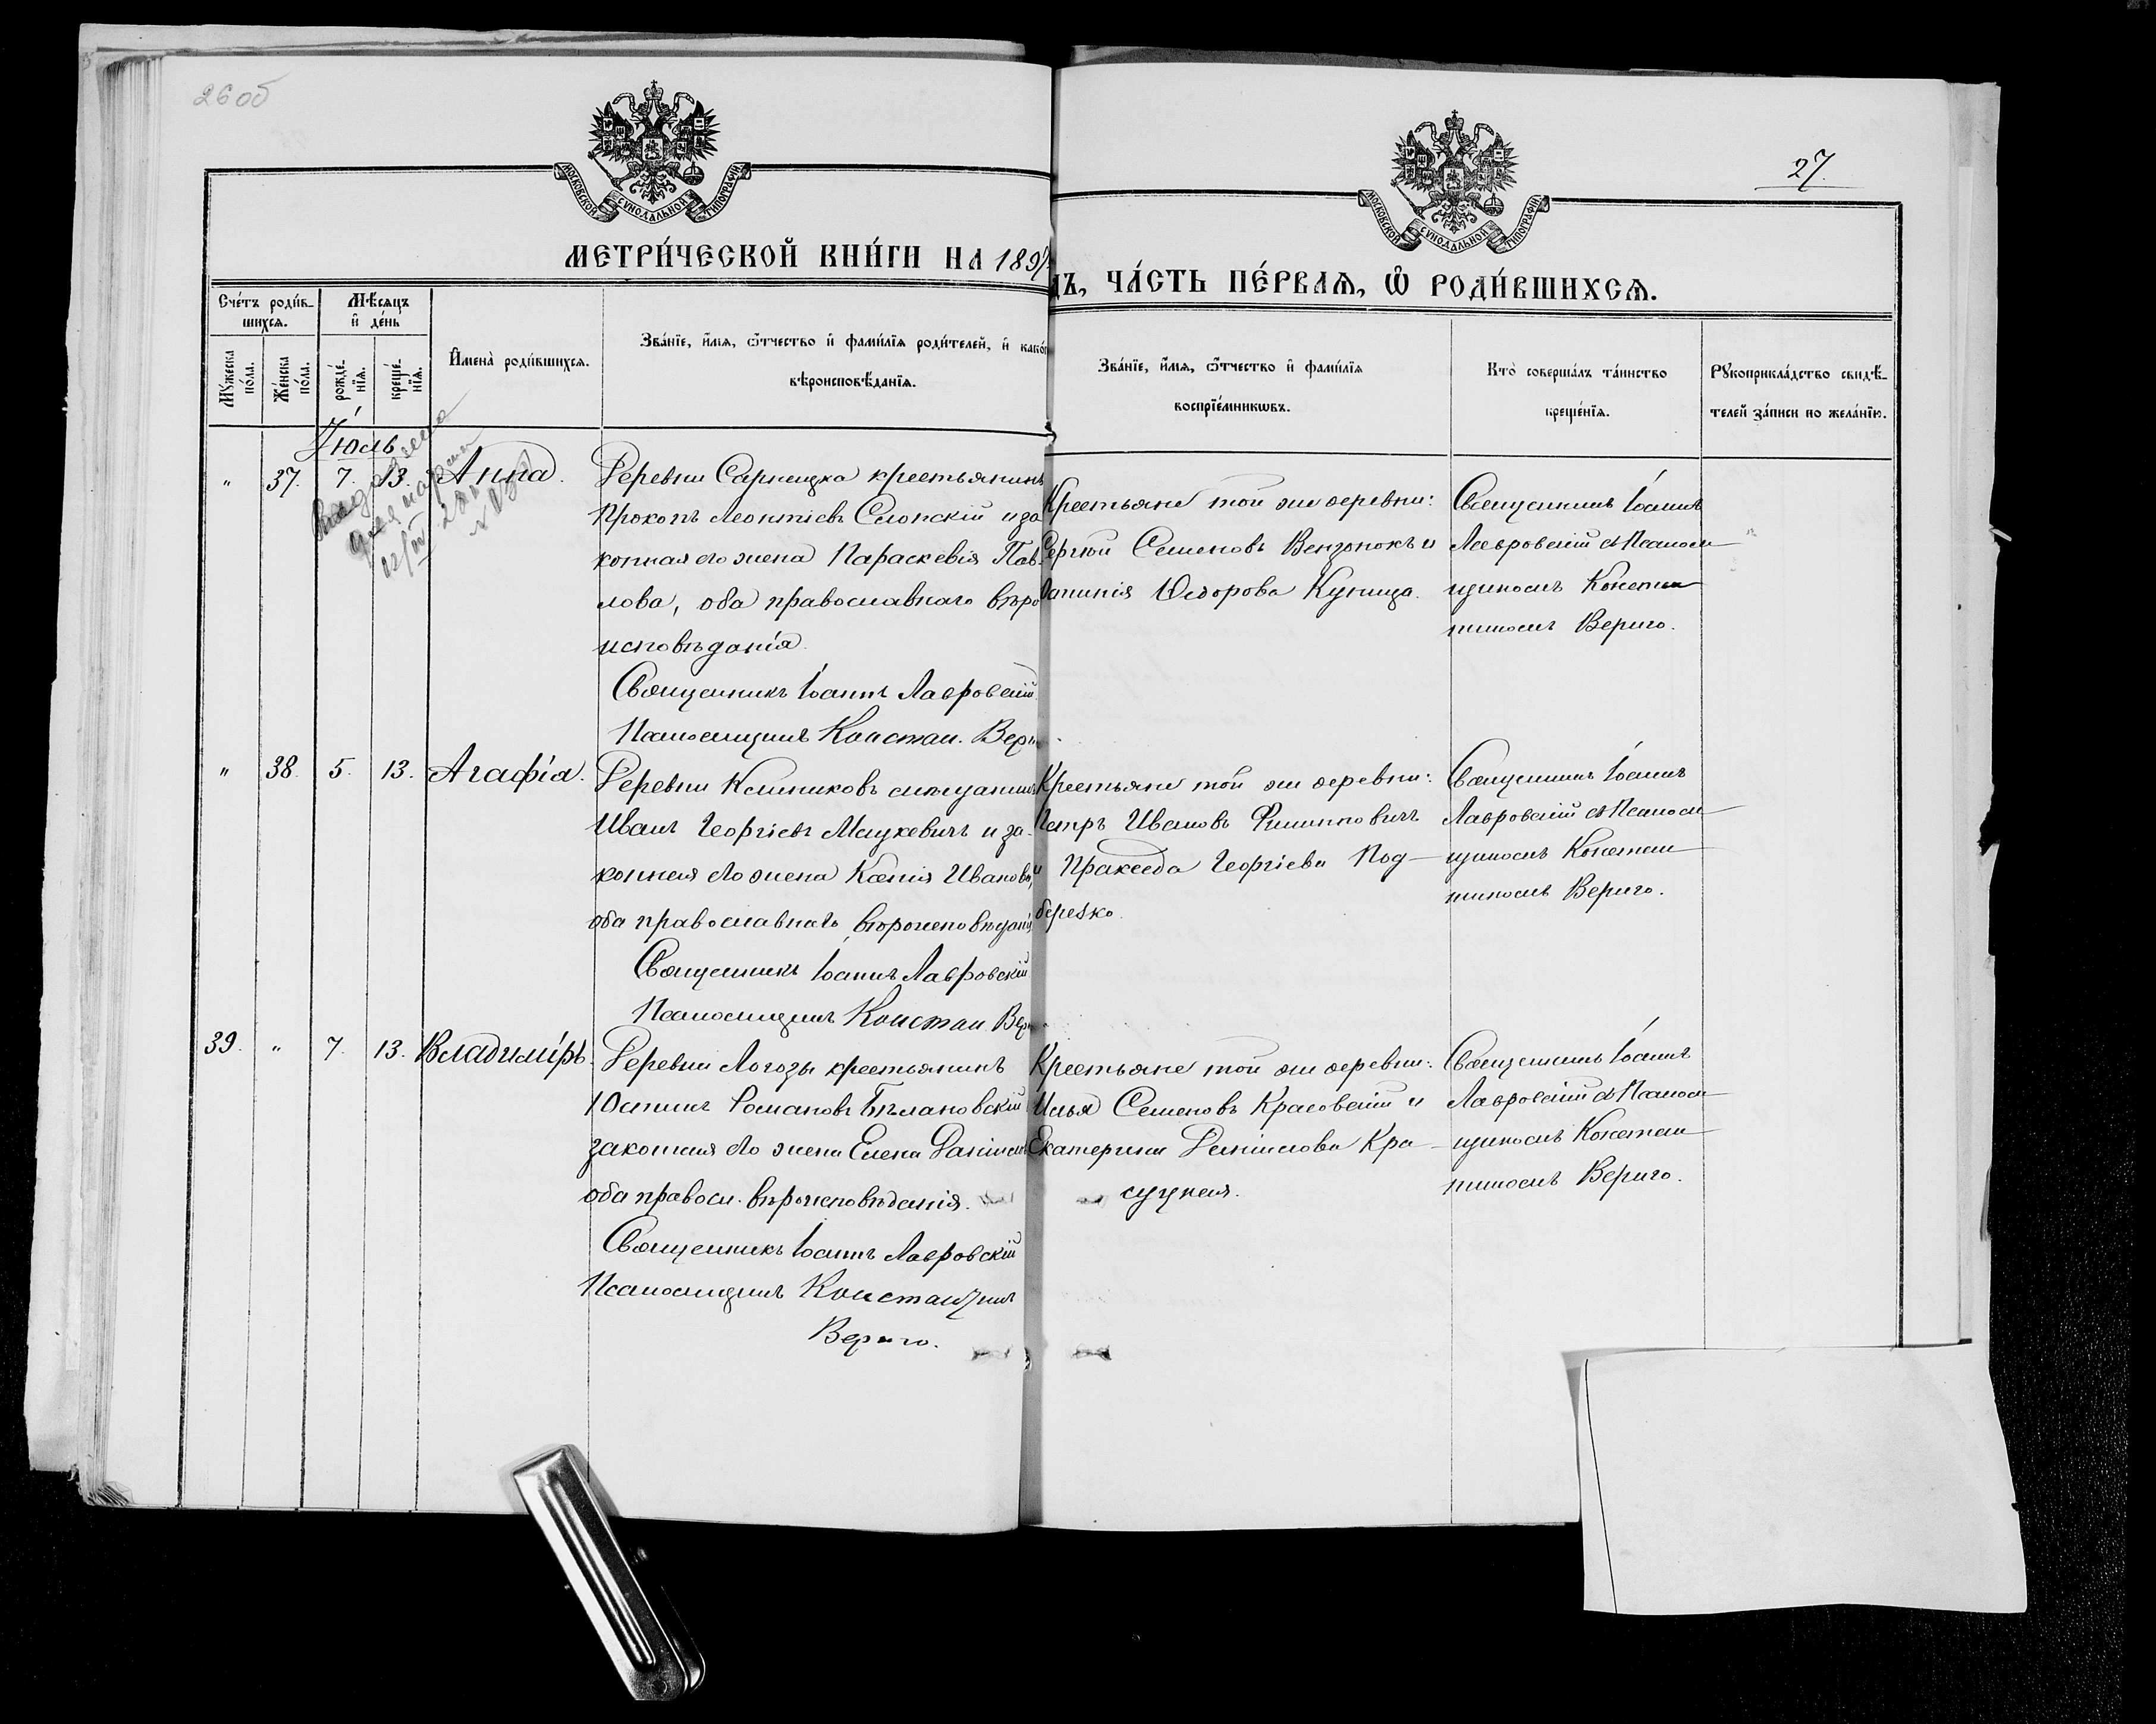 26об
27.
МОСКОВСКОЙ СУНОДАЛЬНОЙ ТИПОГРАФІИ
МОСКОВСКОЙ СУНОДАЛЬНОЙ ТИПОГРАФІИ
МЕТРИ́ЧЕСКОЙ КНИ́ГИ НА 189
ДЪ, ЧА́СТЬ ПЕ́РВАѦ, Ѡ РОДИ́ВШИХСѦ.
Сче́тъ роди́в-
шихсѧ.
Мѣ́сѧцъ
и де́нь
Мꙋжеска по́ла.
Же́нска по́ла.
рожде́-
нїѧ.
креще́-
нїѧ.
И҆мена̀ роди́вшихсѧ.
Зва́нїе, и҆́мѧ, ѻ҆́тчество и҆ фами́лїѧ роди́телей, и҆ како́г
вѣроисповѣ́данїѧ.
Зва́нїе, и҆́мѧ, ѻ҆́тчество и҆ фами́лїѧ
воспрїе́мникѡвъ.
Кто̀ соверша́лъ та́инство
креще́нїѧ.
Рꙋкоприкла́дство свидѣ́-
телей за́писи по жела́нїю.
Іюль
„ 37. 7. 13. Анна.
Деревни Сарницка крестьянинъ
Прокопъ Леонтіевъ Слопскій и за
конная его жена Параскевія Пав-
лова, оба православнаго вѣро
исповѣданія.
Священникъ Іоаннъ Лавровскій
Псаломщикъ Констан. Вери
Крестьяне той же деревни:
Сергѣй Семеновъ Вензонокъ и
Ѳедорова Куница.
Священникъ Іоаннъ
Лавровскій съ Псалом
щикомъ Констан
тиномъ Вериго.
„ 38. 5. 13. Агафія.
Деревни мѣщанинъ
Иванъ Георгіевъ Мацкевичъ и за-
конная его жена Ксенія Иванова,
оба православнаго вѣроисповѣданія
Священникъ Іоаннъ Лавровскій
Псаломщикъ Констан Вер
Крестьяне той же деревни:
Петръ Ивановъ Филипповичъ
и Пракседа Георгіева Под-
березко.
Священникъ Іоаннъ
Лавровскій съ Псалом
щикомъ Констан
тиномъ Вериго.
39. „ 7. 13. Владиміръ.
Деревни Логозы крестьянинъ
Юстинъ Романовъ Бѣлановскій
законная его жена Елена Даніилова
оба правосл. вѣроисповѣданія.
Священникъ Іоаннъ Лавровскій
Псаломщикъ Константинъ
Вериго.
Крестьяне той же деревни:
Илья Семеновъ Красовскій и
Екатерина Даніилова Кра-
суцкая.
Священникъ Іоаннъ
Лавровскій съ Псалом
щикомъ Констан
тиномъ Вериго.